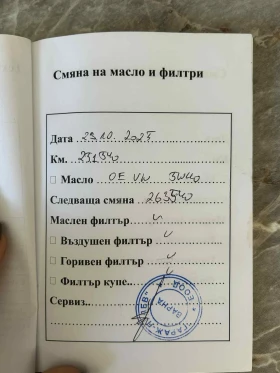 Смяна на масло и филтри
Дата 29.10.2025
Км. 251540
Масло OE VW 5W40
Следваща смяна 263540
Маслен филтър
Въздушен филтър
Горивен филтър
Филтър купе
Сервиз
ВАРНА
ЕООД